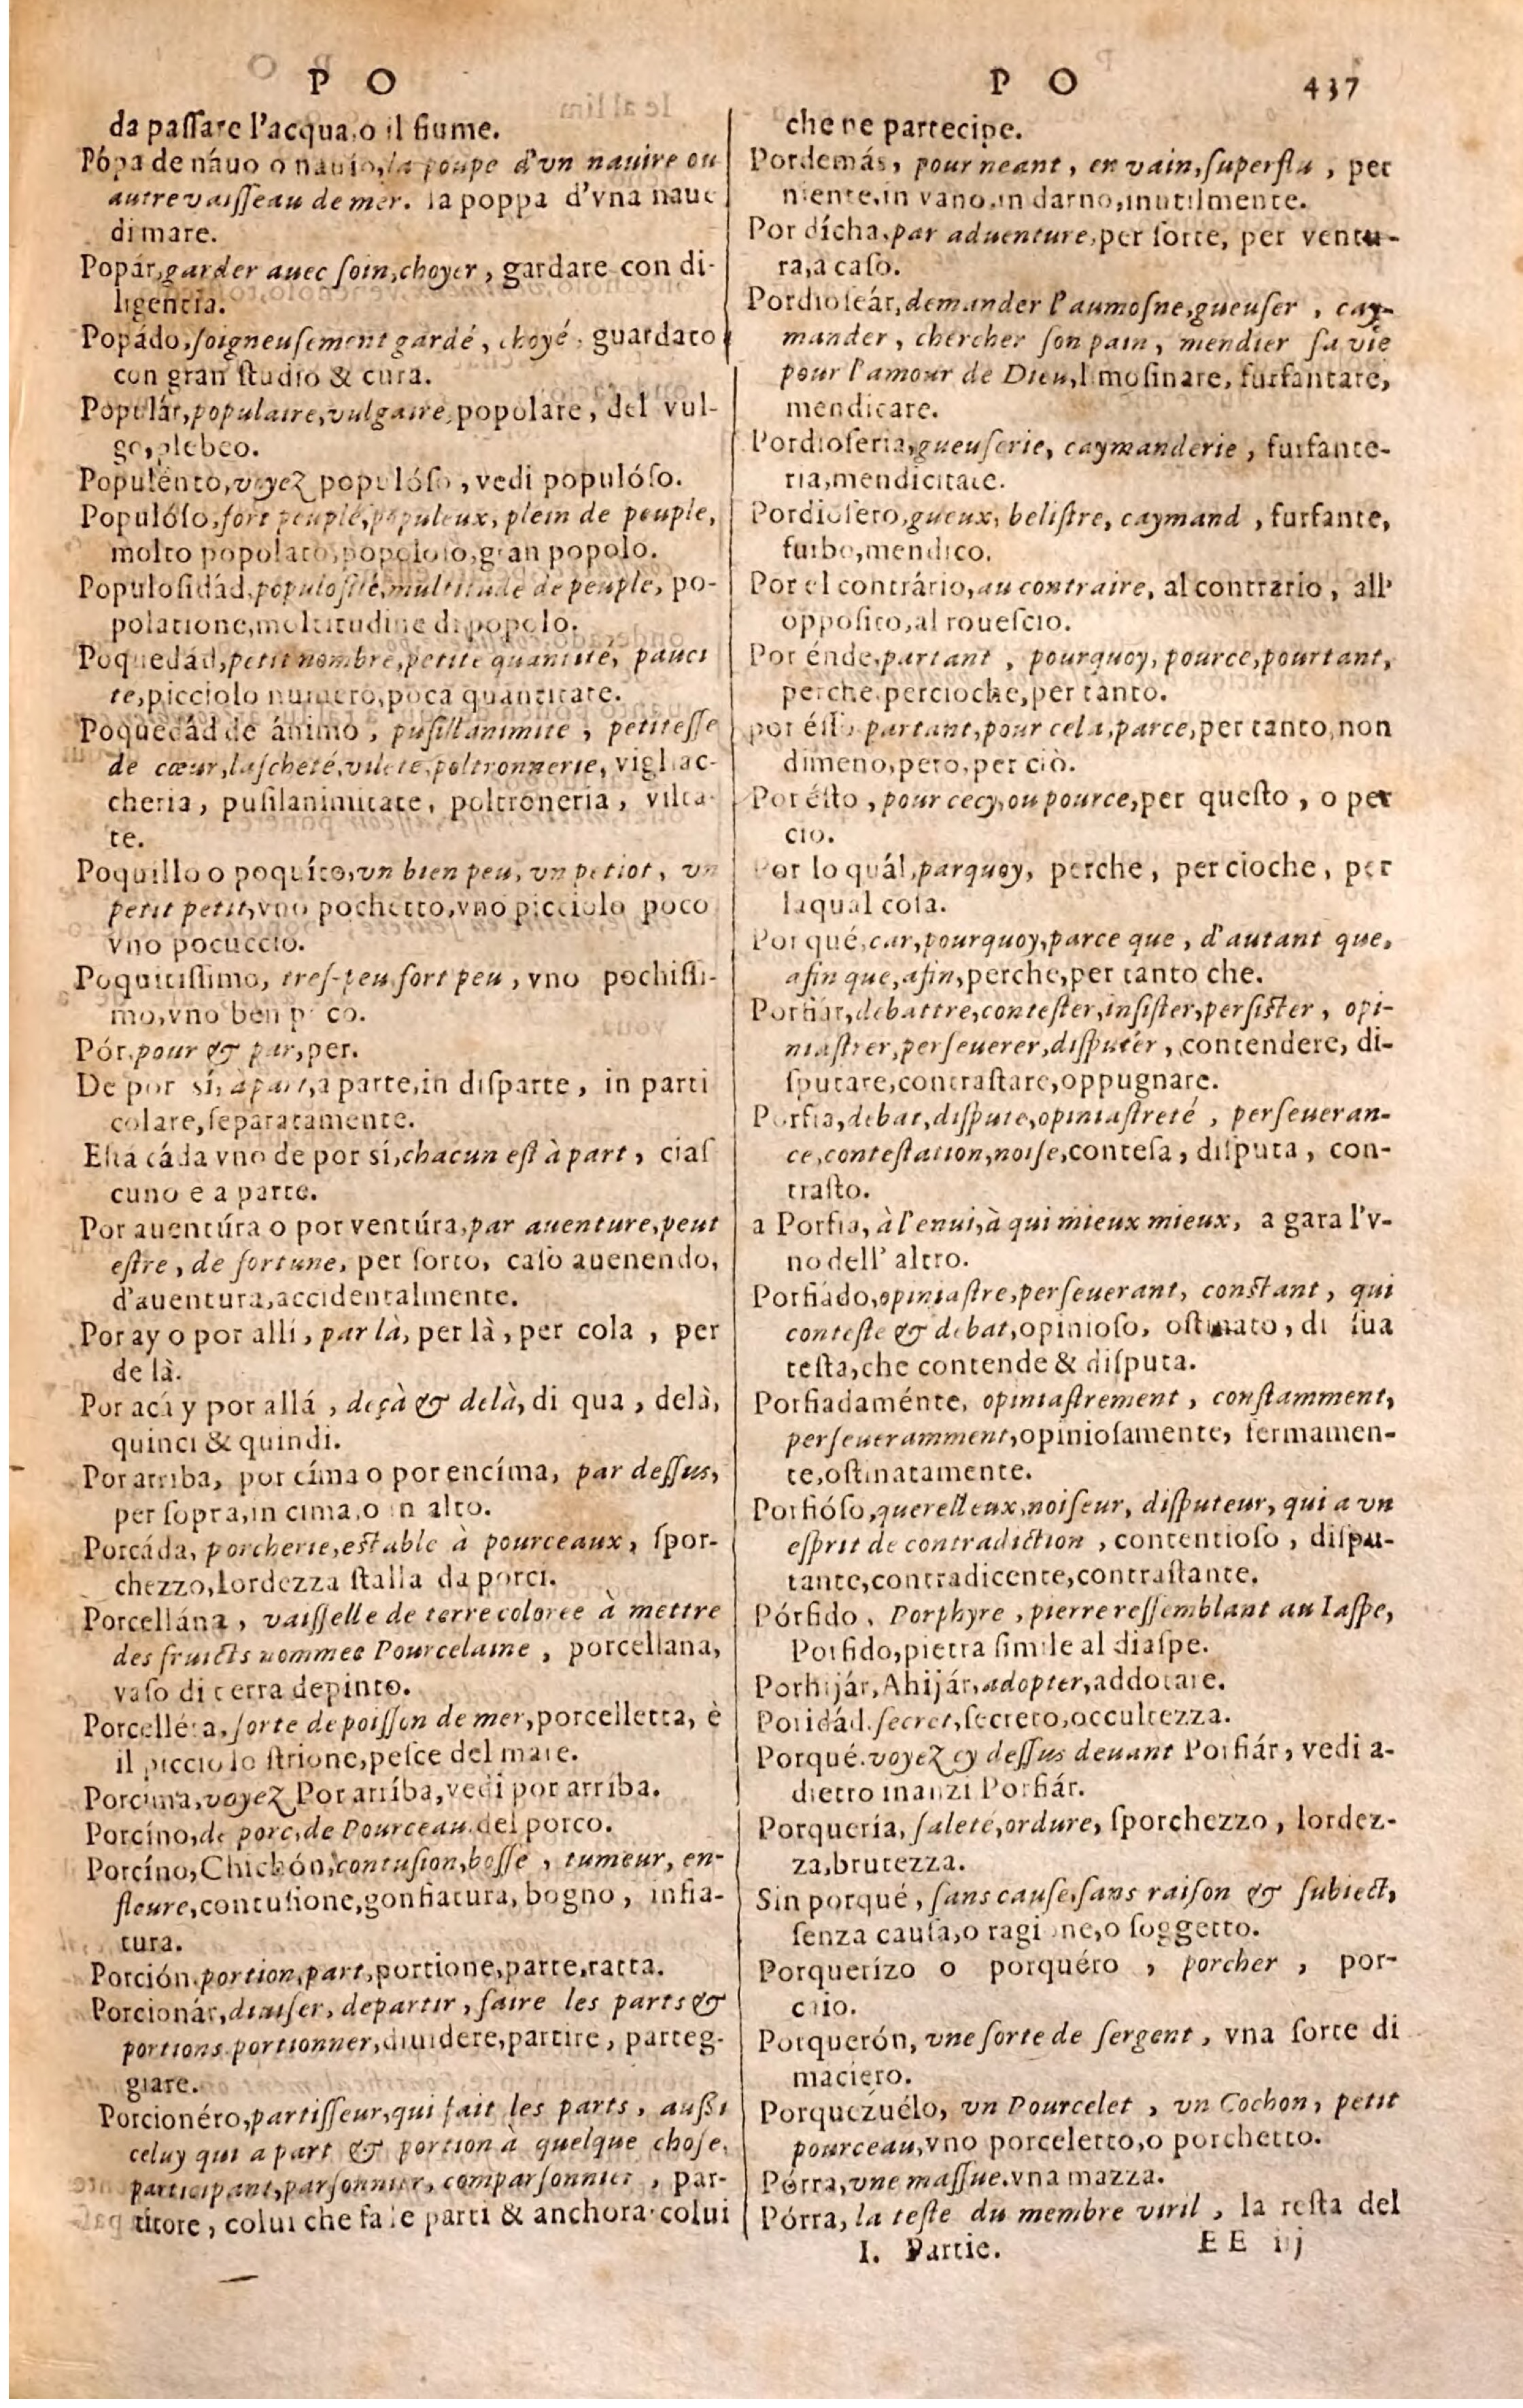 P O
da paſſare l'acqua, o il fiume.
Pópa de náuo o nauío, la poupe d'vn nauire ou
autre vaiſſeau de mer. la poppa d'vna naue
di mare.
Popár, garder auec ſoin, choyer, gardare con di-
ligencia.
Popádo, ſoigneuſement gardé, choyé, guardato
con gran ſtudio & cura.
Populár, populaire, vulgaire, popolare, del vul-
go, plebeo.
Populénto, voyez populóſo, vedi populóſo.
Populóſo, fort peuplé, populeux, plein de peuple,
molto popolato, popoloſo, gran popolo.
Populoſidád, populoſité, multitude de peuple, po-
polatione, moltitudine di popolo.
Poquedád, petit nombre, petite quantité, pauci
te, picciolo numero, poca quantitate.
Poquedád de ánimo, puſillanimite, petiteſſe
de cœur, laſcheté, vileté, poltronnerie, vigliac-
cheria, puſilanimitate, poltroneria, vilta-
te.
Poquíllo o poquíto, vn bien peu, vn petiot, vn
petit petit, vno pochetto, vno picciolo poco
vno pocuccio.
Poquitiſſimo, treſ-peu, fort peu, vno pochiſſi-
mo, vno ben poco.
Pór, pour & par, per.
De por sí, à part, a parte, in diſparte, in parti
colare, ſeparatamente.
Eſtá cáda vno de por sí, chacun eſt à part, ciaſ
cuno e a parte.
Por auentúra o por ventúra, par auenture, peut
eſtre, de fortune, per ſorto, caſo auenendo,
d'auentura, accidentalmente.
Por ay o por allí, par là, per là, per cola, per
de là.
Por acá y por allá, deçà & delà, di qua, delà,
quinci & quindi.
Por arriba, por címa o por encíma, par deſſus,
per ſopra, in cima, o in alto.
Porcáda, porcherie, eſtable à pourceaux, ſpor-
chezzo, lordezza ſtalla da porci.
Porcellána, vaiſſelle de terre coloree à mettre
des fruicts nommee Pourcelaine, porcellana,
vaſo di terra depinto.
Porcelléta, ſorte de poiſſon de mer, porcelletta, è
il picciolo ſtrione, peſce del mare.
Porcima, voyez Por arríba, vedi por arríba.
Porcíno, de porc, de Pourceau. del porco.
Porcíno, Chichón, contuſion, boſſe, tumeur, en-
fleure, contuſione, gonfiatura, bogno, infia-
tura.
Porción, portion, part, portione, parte, ratta.
Porcionár, diuiſer, departir, faire les parts &
portions. portionner, diuidere, partire, parteg-
giare.
Porcionéro, partiſſeur, qui fait les parts, auſſi
celuy qui a part & portion à quelque choſe,
participant, parſonnier, comparſonnier, par-
titore, colui che fa le parti & anchora colui
P O 437
che ne partecipe.
Pordemás, pour neant, en vain, ſuperflu, per
niente, in vano, in darno, inutilmente.
Por dícha, par aduenture, per ſorte, per ventu-
ra, a caſo.
Pordioſeár, demander l'aumoſne, gueuſer, cay-
mander, chercher ſon pain, mendier ſa vie
pour l'amour de Dieu, limoſinare, furfantare,
mendicare.
Pordioſeria, gueuſerie, caymanderie, furfante-
ria, mendicitate.
Pordioſero, gueux, beliſtre, caymand, furfante,
furbo, mendico.
Por el contrário, au contraire, al contrario, all'
oppoſito, al roueſcio.
Por énde, partant, pourquoy, pource, pourtant,
perche, percioche, per tanto.
por éſſo partant, pour cela, parce, per tanto, non
dimeno, pero, per ciò.
Por éſto, pour cecy, ou pource, per queſto, o per
cio.
Por lo quál, parquoy, perche, per cioche, per
laqual coſa.
Por qué, car, pourquoy, parce que, d'autant que,
afin que, afin, perche, per tanto che.
Porfiár, debattre, conteſter, inſiſter, perſiſter, opi-
niaſtrer, perſeuerer, diſputer, contendere, di-
ſputare, contraſtare, oppugnare.
Porfia, debat, diſpute, opiniaſtreté, perſeueran-
ce, conteſtation, noiſe, conteſa, diſputa, con-
traſto.
a Porfia, à l'enui, à qui mieux mieux, a gara l'v-
no dell' altro.
Porfiádo, opiniaſtre, perſeuerant, conſtant, qui
conteſte & debat, opinioſo, oſtinato, di ſua
teſta, che contende & diſputa.
Porfiadaménte, opiniaſtrement, conſtamment,
perſeueramment, opinioſamente, fermamen-
te, oſtinatamente.
Porfióſo, querelleux, noiſeur, diſputeur, qui a vn
eſprit de contradiction, contentioſo, diſpu-
tante, contradicente, contraſtante.
Pórfido, Porphyre, pierre reſſemblant au Iaſpe,
Porfido, pietra ſimile al diaſpe.
Porhijár, Ahijár, adopter, addotare.
Poridád. ſecret, ſecreto, occultezza.
Porqué. voyez cy deſſus deuant Porfiár, vedi a-
dietro inanzi Porfiár.
Porquería, ſaleté, ordure, ſporchezzo, lordez-
za, brutezza.
Sin porqué, ſans cauſe, ſans raiſon & ſubiect,
ſenza cauſa, o ragione, o ſoggetto.
Porquerízo o porquéro, porcher, por-
caio.
Porquerón, vne ſorte de ſergent, vna ſorte di
maciero.
Porquezuélo, vn Pourcelet, vn Cochon, petit
pourceau, vno porceletto, o porchetto.
Pórra, vne maſſue. vna mazza.
Pórra, la teſte du membre viril, la teſta del
I. Partie. EE iij